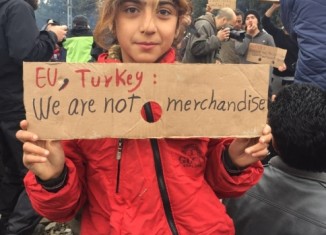 EU, Turkey:
We are not merchandise